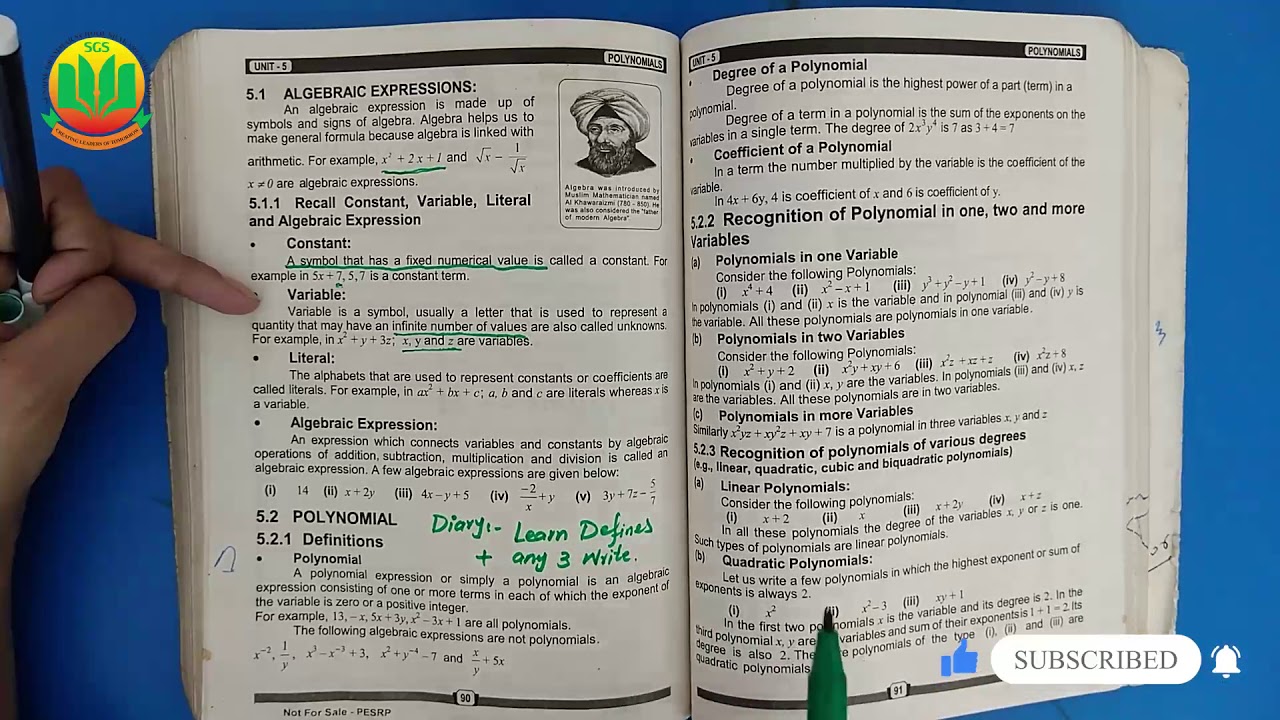 SGS
CREATING LEADERS OF TOMORROW
UNIT - 5
POLYNOMIALS
5.1 ALGEBRAIC EXPRESSIONS:
An algebraic expression is made up of
symbols and signs of algebra. Algebra helps us to
make general formula because algebra is linked with
arithmetic. For example, x² + 2x + 1 and √x − 1/√x
x ≠ 0 are algebraic expressions.
Algebra was introduced by
Muslim Mathematician named
Al Khawaraizmi (780 - 850). He
was also considered the "father
of modern Algebra".
5.1.1 Recall Constant, Variable, Literal
and Algebraic Expression
• Constant:
A symbol that has a fixed numerical value is called a constant. For
example in 5x + 7, 5, 7 is a constant term.
• Variable:
Variable is a symbol, usually a letter that is used to represent a
quantity that may have an infinite number of values are also called unknowns.
For example, in x² + y + 3z; x, y and z are variables.
• Literal:
The alphabets that are used to represent constants or coefficients are
called literals. For example, in ax² + bx + c; a, b and c are literals whereas x is
a variable.
• Algebraic Expression:
An expression which connects variables and constants by algebraic
operations of addition, subtraction, multiplication and division is called an
algebraic expression. A few algebraic expressions are given below:
(i) 14 (ii) x + 2y (iii) 4x − y + 5 (iv) −2/x + y (v) 3y + 7z − 5/7
5.2 POLYNOMIAL
Diary:- Learn Defines
+ any 3 write.
5.2.1 Definitions
• Polynomial
A polynomial expression or simply a polynomial is an algebraic
expression consisting of one or more terms in each of which the exponent of
the variable is zero or a positive integer.
For example, 13, −x, 5x + 3y, x² − 3x + 1 are all polynomials.
The following algebraic expressions are not polynomials.
x⁻², 1/y, x³ − x⁻³ + 3, x² + y⁻⁴ − 7 and x/y + 5x
90
Not For Sale - PESRP
UNIT - 5
POLYNOMIALS
• Degree of a Polynomial
Degree of a polynomial is the highest power of a part (term) in a
polynomial.
Degree of a term in a polynomial is the sum of the exponents on the
variables in a single term. The degree of 2x³y⁴ is 7 as 3 + 4 = 7
• Coefficient of a Polynomial
In a term the number multiplied by the variable is the coefficient of the
variable.
In 4x + 6y, 4 is coefficient of x and 6 is coefficient of y.
5.2.2 Recognition of Polynomial in one, two and more
Variables
(a) Polynomials in one Variable
Consider the following Polynomials:
(i) x⁴ + 4 (ii) x² − x + 1 (iii) y³ + y² − y + 1 (iv) y² − y + 8
In polynomials (i) and (ii) x is the variable and in polynomial (iii) and (iv) y is
the variable. All these polynomials are polynomials in one variable.
(b) Polynomials in two Variables
Consider the following Polynomials:
(i) x² + y + 2 (ii) x²y + xy + 6 (iii) x²z + xz + z (iv) x²z + 8
In polynomials (i) and (ii) x, y are the variables. In polynomials (iii) and (iv) x, z
are the variables. All these polynomials are in two variables.
(c) Polynomials in more Variables
Similarly x²yz + xy²z + xy + 7 is a polynomial in three variables x, y and z
5.2.3 Recognition of polynomials of various degrees
(e.g., linear, quadratic, cubic and biquadratic polynomials)
(a) Linear Polynomials:
Consider the following polynomials:
(i) x + 2 (ii) x (iii) x + 2y (iv) x + z
In all these polynomials the degree of the variables x, y or z is one.
Such types of polynomials are linear polynomials.
(b) Quadratic Polynomials:
Let us write a few polynomials in which the highest exponent or sum of
exponents is always 2.
(i) x² (ii) x² − 3 (iii) xy + 1
In the first two polynomials x is the variable and its degree is 2. In the
third polynomial x, y are variables and sum of their exponents is 1 + 1 = 2. Its
degree is also 2. polynomials of the type (i), (ii) and (iii) are
quadratic polynomials
91
SUBSCRIBED